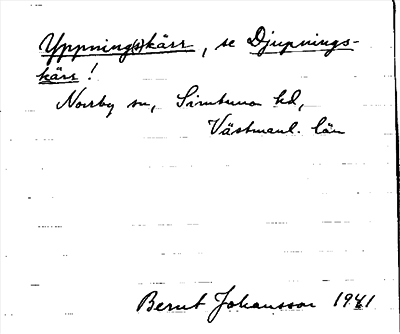 Yppning(s)kärr, se Djupnings-
kärr!
Norrby sn, Simtuna hd,
Västmanl. län
Bernt Johansson 1941